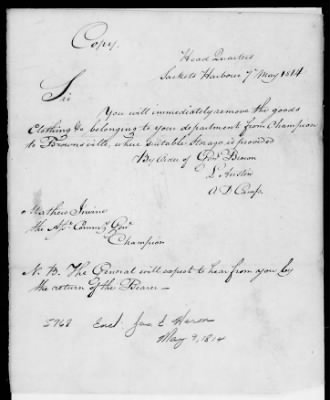 Copy.
Head Quarters
Sackets Harbour 7th May 1814
Sir
You will immediately remove the goods
Clothing &c belonging to your department from Champion
to Brownsville, where suitable storage is provided
By Order of Genl Brown
L. Austin
A D Camp.
Mathew Irvine
the Asst Commy Genl
Champion
N. B. The General will expect to hear from you by
the return of the Bearer—
5968 Encl. Jas E Heron
May 9, 1814